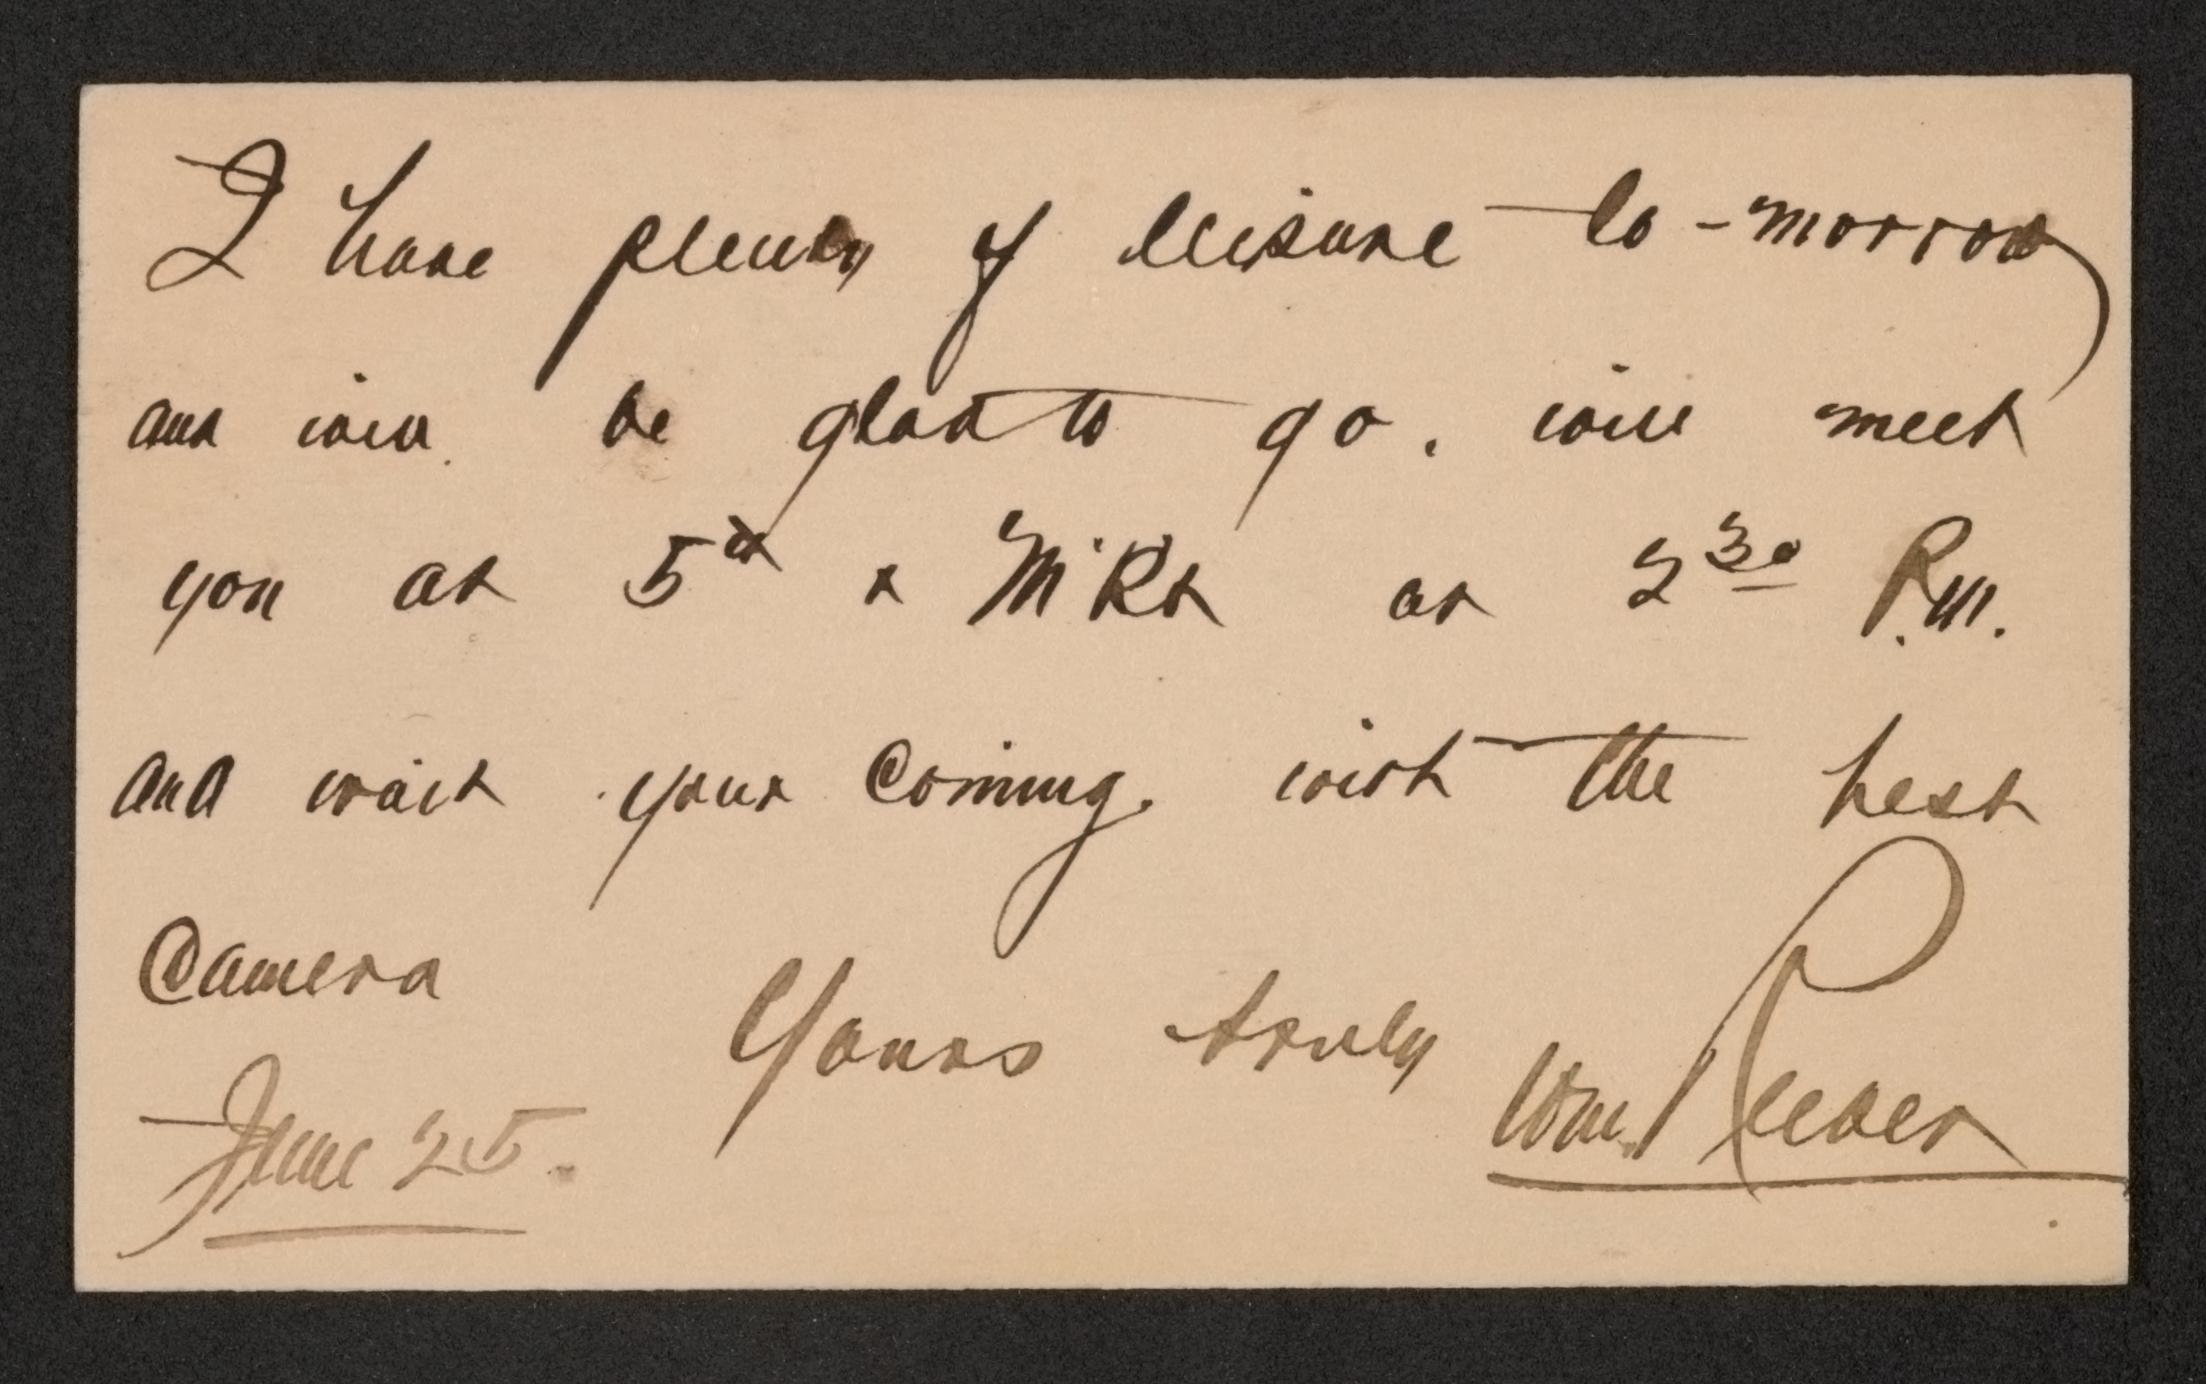 I have plenty of leisure to-morrow
and will be glad to go. will meet
you at 5th & M'Kt at 2 30 P.M.
and wait your coming. with the best
Camera
Yours truly
June 25. Wm. Reeber